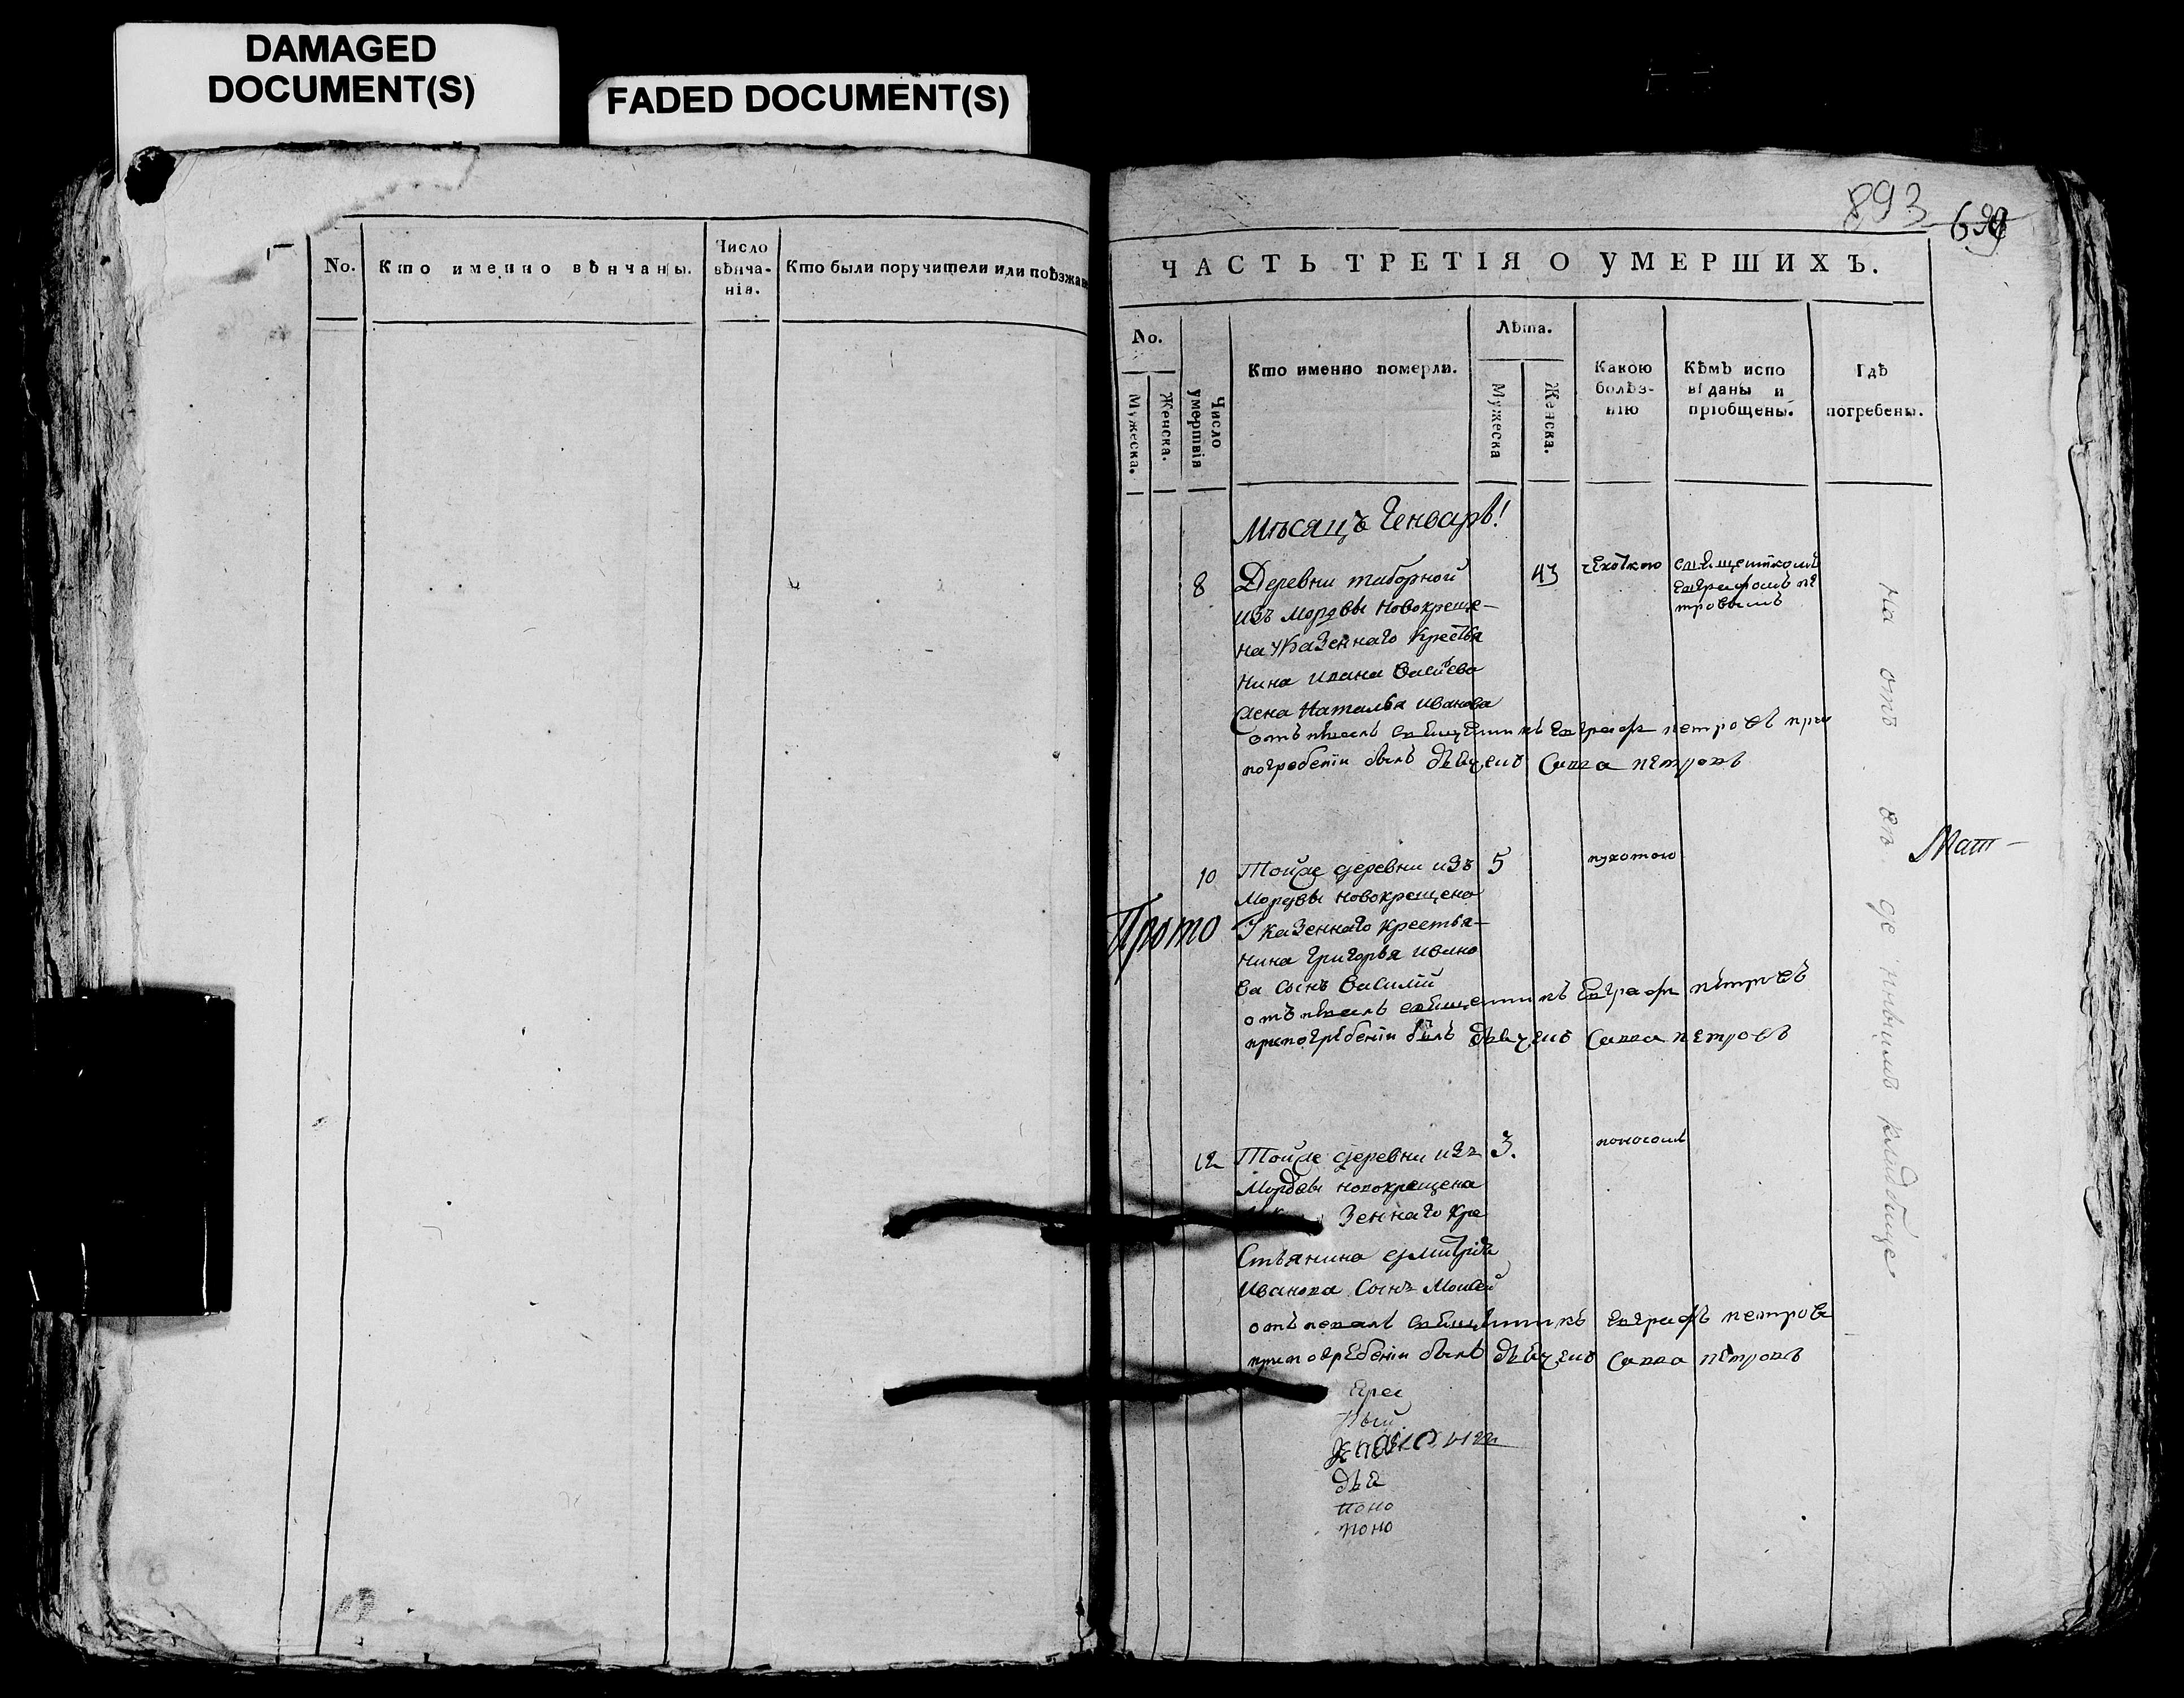 DAMAGED
DOCUMENT(S)
FADED DOCUMENT(S)
No.
Кто именно вѣнчаны.
Число
вѣнча-
нія.
Кто были поручители или поѣзжан
893
ЧАСТЬ ТРЕТІЯ О УМЕРШИХЪ.
No.
Мужеска.
Женска.
Число
умертвія
Кто именно померли.
Лѣта.
Мужеска
Женска.
Какою
болѣз-
нію
Кѣмъ испо
вѣданы и
пріобщены.
Гдѣ
погребены.
Мѣсяцъ Генварь!
8
Деревни таборной
изъ мордвы новокреще-
на Указеннаго Крестья
нина ивана Васильева
жена Наталья иванова
43
чехоткою
священникомъ
Евграфомъ пе
тровымъ
отъпѣвалъ священникъ Евграф петровъ при
погребеніи былъ дьячекъ Савва петровъ
10
Тойже деревни изъ
Мордвы новокрещена
Указеннаго крестья-
нина григорья ивано
ва сынъ Василій
5
пухотою
отъпѣвалъ священникъ Евграф петровъ
припогребеніи былъ дьячекъ Савва петровъ
Прото
Мат-
12
Тойже деревни изъ
Мордвы новокрещена
зеннаго Кре
стьянина дмитрія
Иванова сынъ Моисей
3.
поносомъ
отъпевалъ священникъ Евграфъ петровъ
припогребеніи былъ дьячекъ Савва петровъ
на отъ въ де кладбище
дья
поно
поно